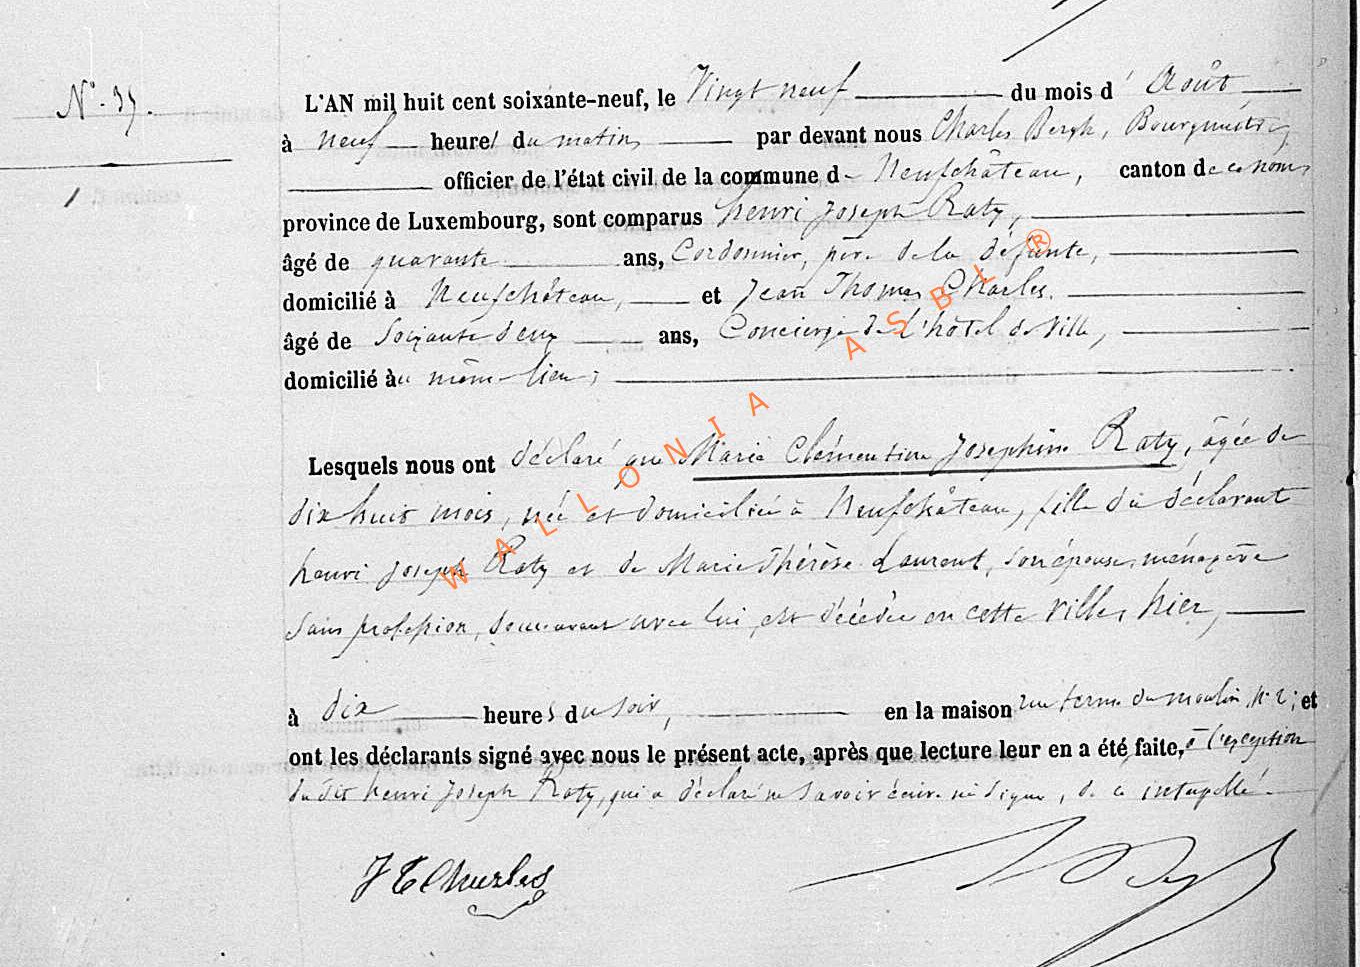 N° 37.
L'AN mil huit cent soixante-neuf, le Vingt neuf du mois d' Août
à neuf heures du matin par devant nous Charles Bergh, Bourgmestre
officier de l'état civil de la commune de Neufchâteau, canton de ce nom,
province de Luxembourg, sont comparus henri Joseph Raty,
âgé de quarante ans, Cordonnier, père de la défunte,
domicilié à Neufchâteau, et Jean Thomas Charles.
âgé de Soixante deux ans, Concierge de L'hôtel de Ville,
domicilié au même lieu;
Lesquels nous ont déclaré que Marie Clémentine Josephine Raty, âgée de
dix huit mois, née et domiciliée à Neufchâteau, fille du déclarant
henri Joseph Raty et de Marie Thérèse Laurent, son épouse, ménagère
sans profession, demeurant avec lui, est décédée en cette ville, hier,
à dix heures du soir, en la maison rue terme du moulin N° 2; et
ont les déclarants signé avec nous le présent acte, après que lecture leur en a été faite, à l'exception
du dit henri Joseph Raty, qui a déclaré ne savoir écrire ni signer, de ce interpellé.
J T Charles
WALLONIA ASBL ®